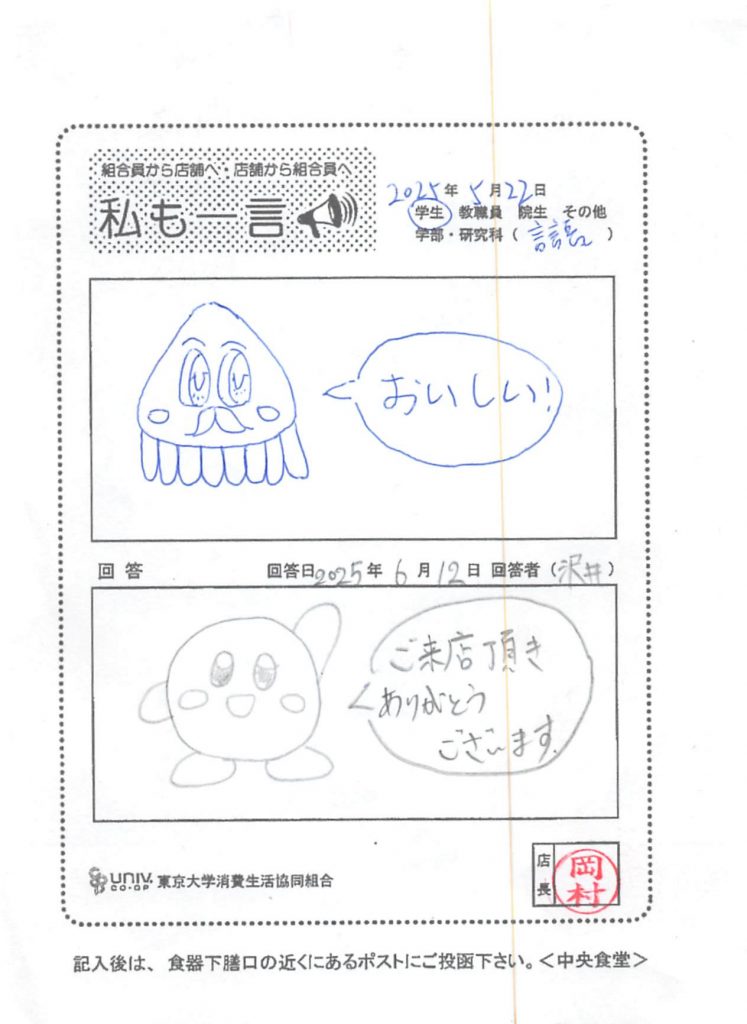 組合員から店舗へ・店舗から組合員へ
私も一言
2025年 5月22日
学生 教職員 院生 その他
学部・研究科（ ）
おいしい!
回答 回答日2025年 6月12日 回答者（沢井）
ご来店頂き
ありがとう
ございます.
UNIV. CO-OP 東京大学消費生活協同組合
店長 岡村
記入後は、食器下膳口の近くにあるポストにご投函下さい。＜中央食堂＞